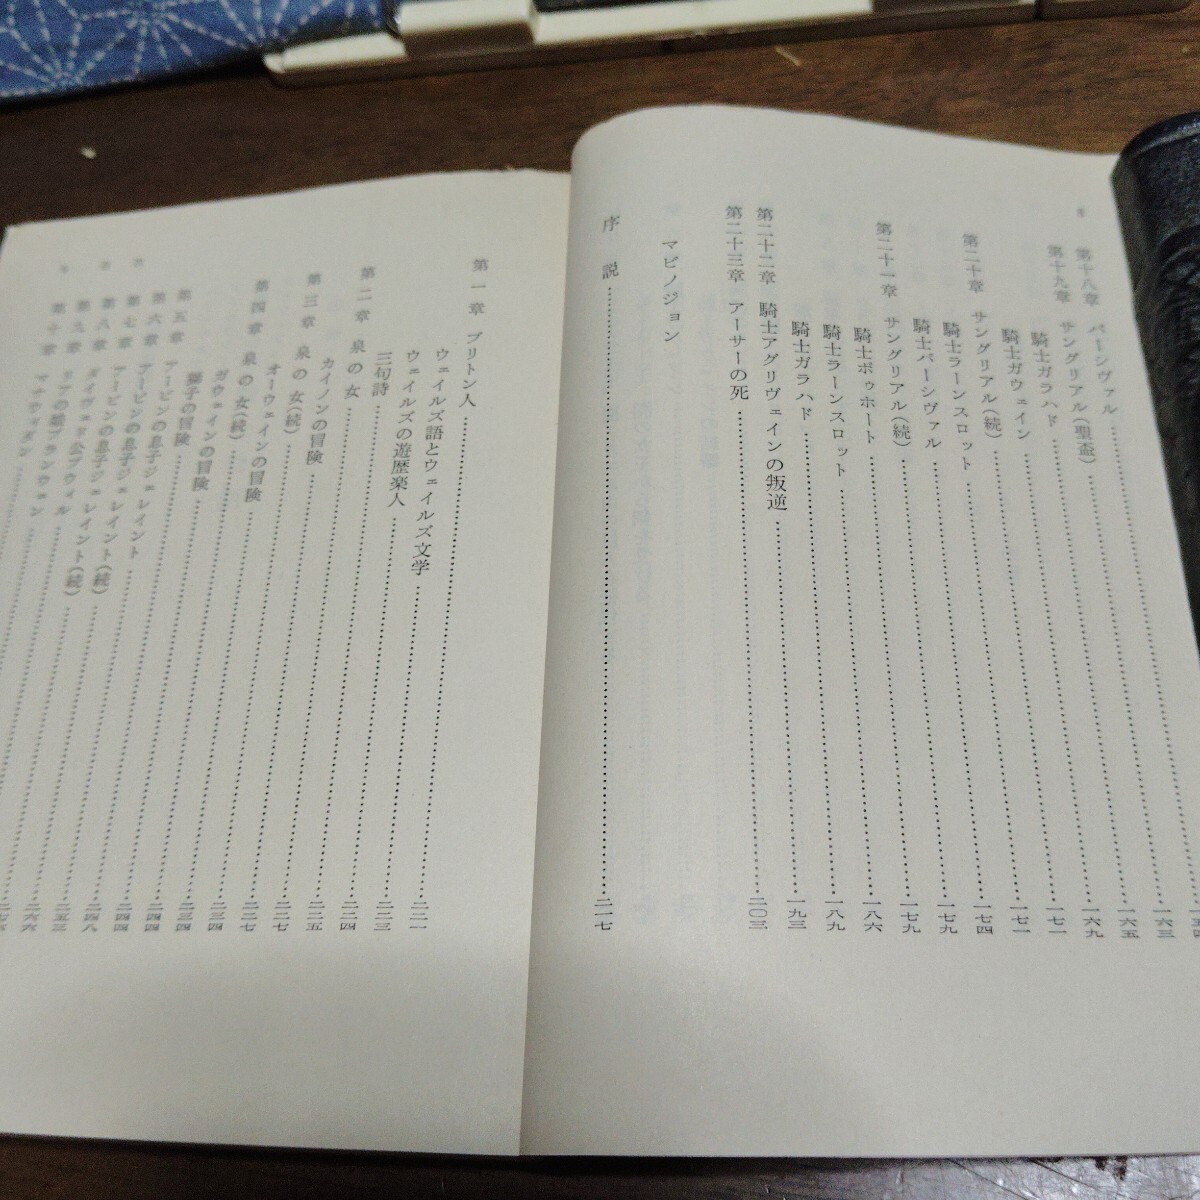 8
パーシヴァル……一五四
第十八章 サングリアル(聖盃)……一六三
第十九章 騎士ガラハド……一六五
騎士ガウェイン……一六九
第二十章 サングリアル(続)……一七一
騎士ラーンスロット……一七一
騎士パーシヴァル……一七四
第二十一章 サングリアル(続)……一七九
騎士ボゥホート……一七九
騎士ラーンスロット……一八六
騎士ガラハド……一八九
第二十二章 騎士アグリヴェインの叛逆……一九三
第二十三章 アーサーの死……二〇三
マビノジョン
序説……二一七
第一章 ブリトン人……二二一
ウェイルズ語とウェイルズ文学……二二三
ウェイルズの遊歴楽人……二二四
三句詩……二二五
第二章 泉の女……二二七
カイノンの冒険……二二七
第三章 泉の女(続)……二三四
オーウェインの冒険……二三四
第四章 泉の女(続)……二四四
ガウェインの冒険……二四四
獅子の冒険……二四八
第五章 アービンの息子ジェレイント……二五三
第六章 アービンの息子ジェレイント(続)……二六六
第七章 アービンの息子ジェレイント(続)
第八章 ダイヴェド公プウィル
第九章 リアの娘ブランウェン
第十章 マナウィダン